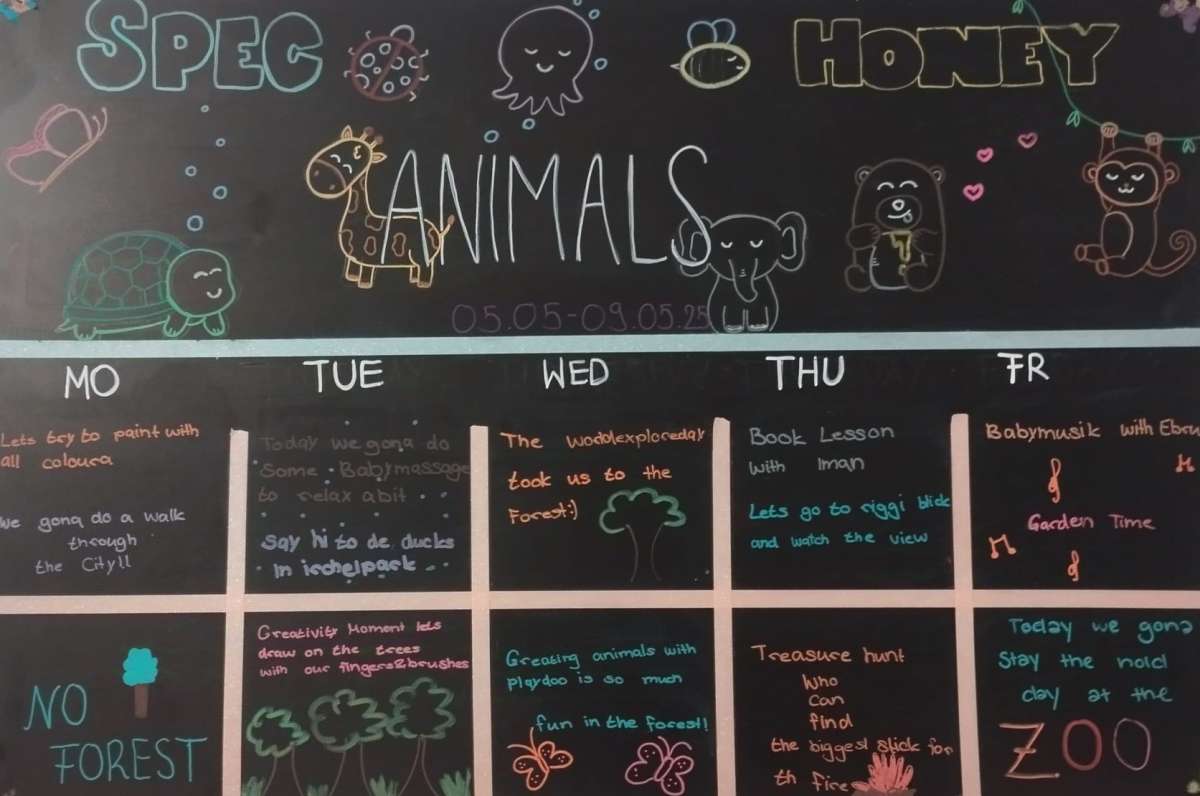 SPEC HONEY
ANIMALS
05.05-09.05.25
MO TUE WED THU FR
Lets try to paint with
all coloura
we gona do a walk
through
the Cityll
Today we gona do
some Babymassage
to relax a bit
Say hi to de ducks
In irchelpark
The wodolexploreday
took us to the
Forest:)
Book Lesson
with Iman
Lets go to riggi blick
and watch the view
Babymusik with Ebru
Garden Time
NO
FOREST
Creativity Moment lets
draw on the trees
with our fingers&brushes
Greating animals with
playdoo is so much
fun in the forest!
Treasure hunt
Who
can
find
the biggest stick for
th fire
Today we gona
Stay the hold
day at the
ZOO